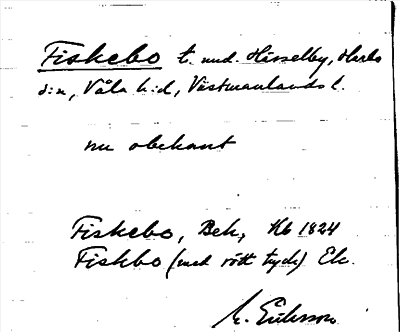 Fiskebo t. und. Hässelby, Harbo
s:n, Våla h:d, Västmanlands l.
nu obekant
Fiskebo, Bek, Hb 1824
Fiskbo (med rött tryck) Ek.
M. Eriksson